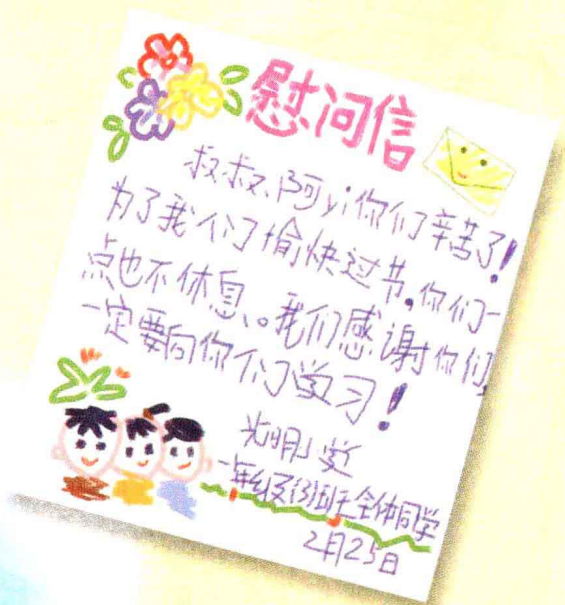 慰问信
叔叔、阿yi你们辛苦了！
为了我们愉快过节，你们一
点也不休息。我们感谢你们，
一定要向你们学习！
光明小学
一年级(3)班全体同学
2月25日